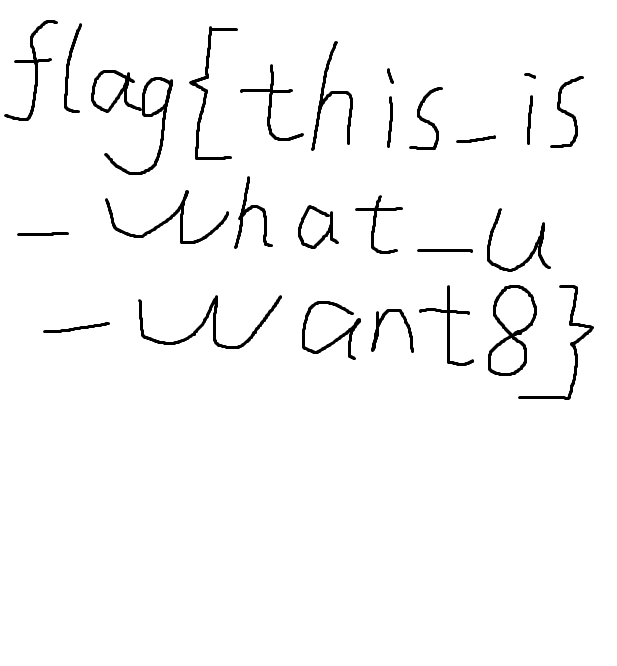 flag{this_is
_what_u
_want8}